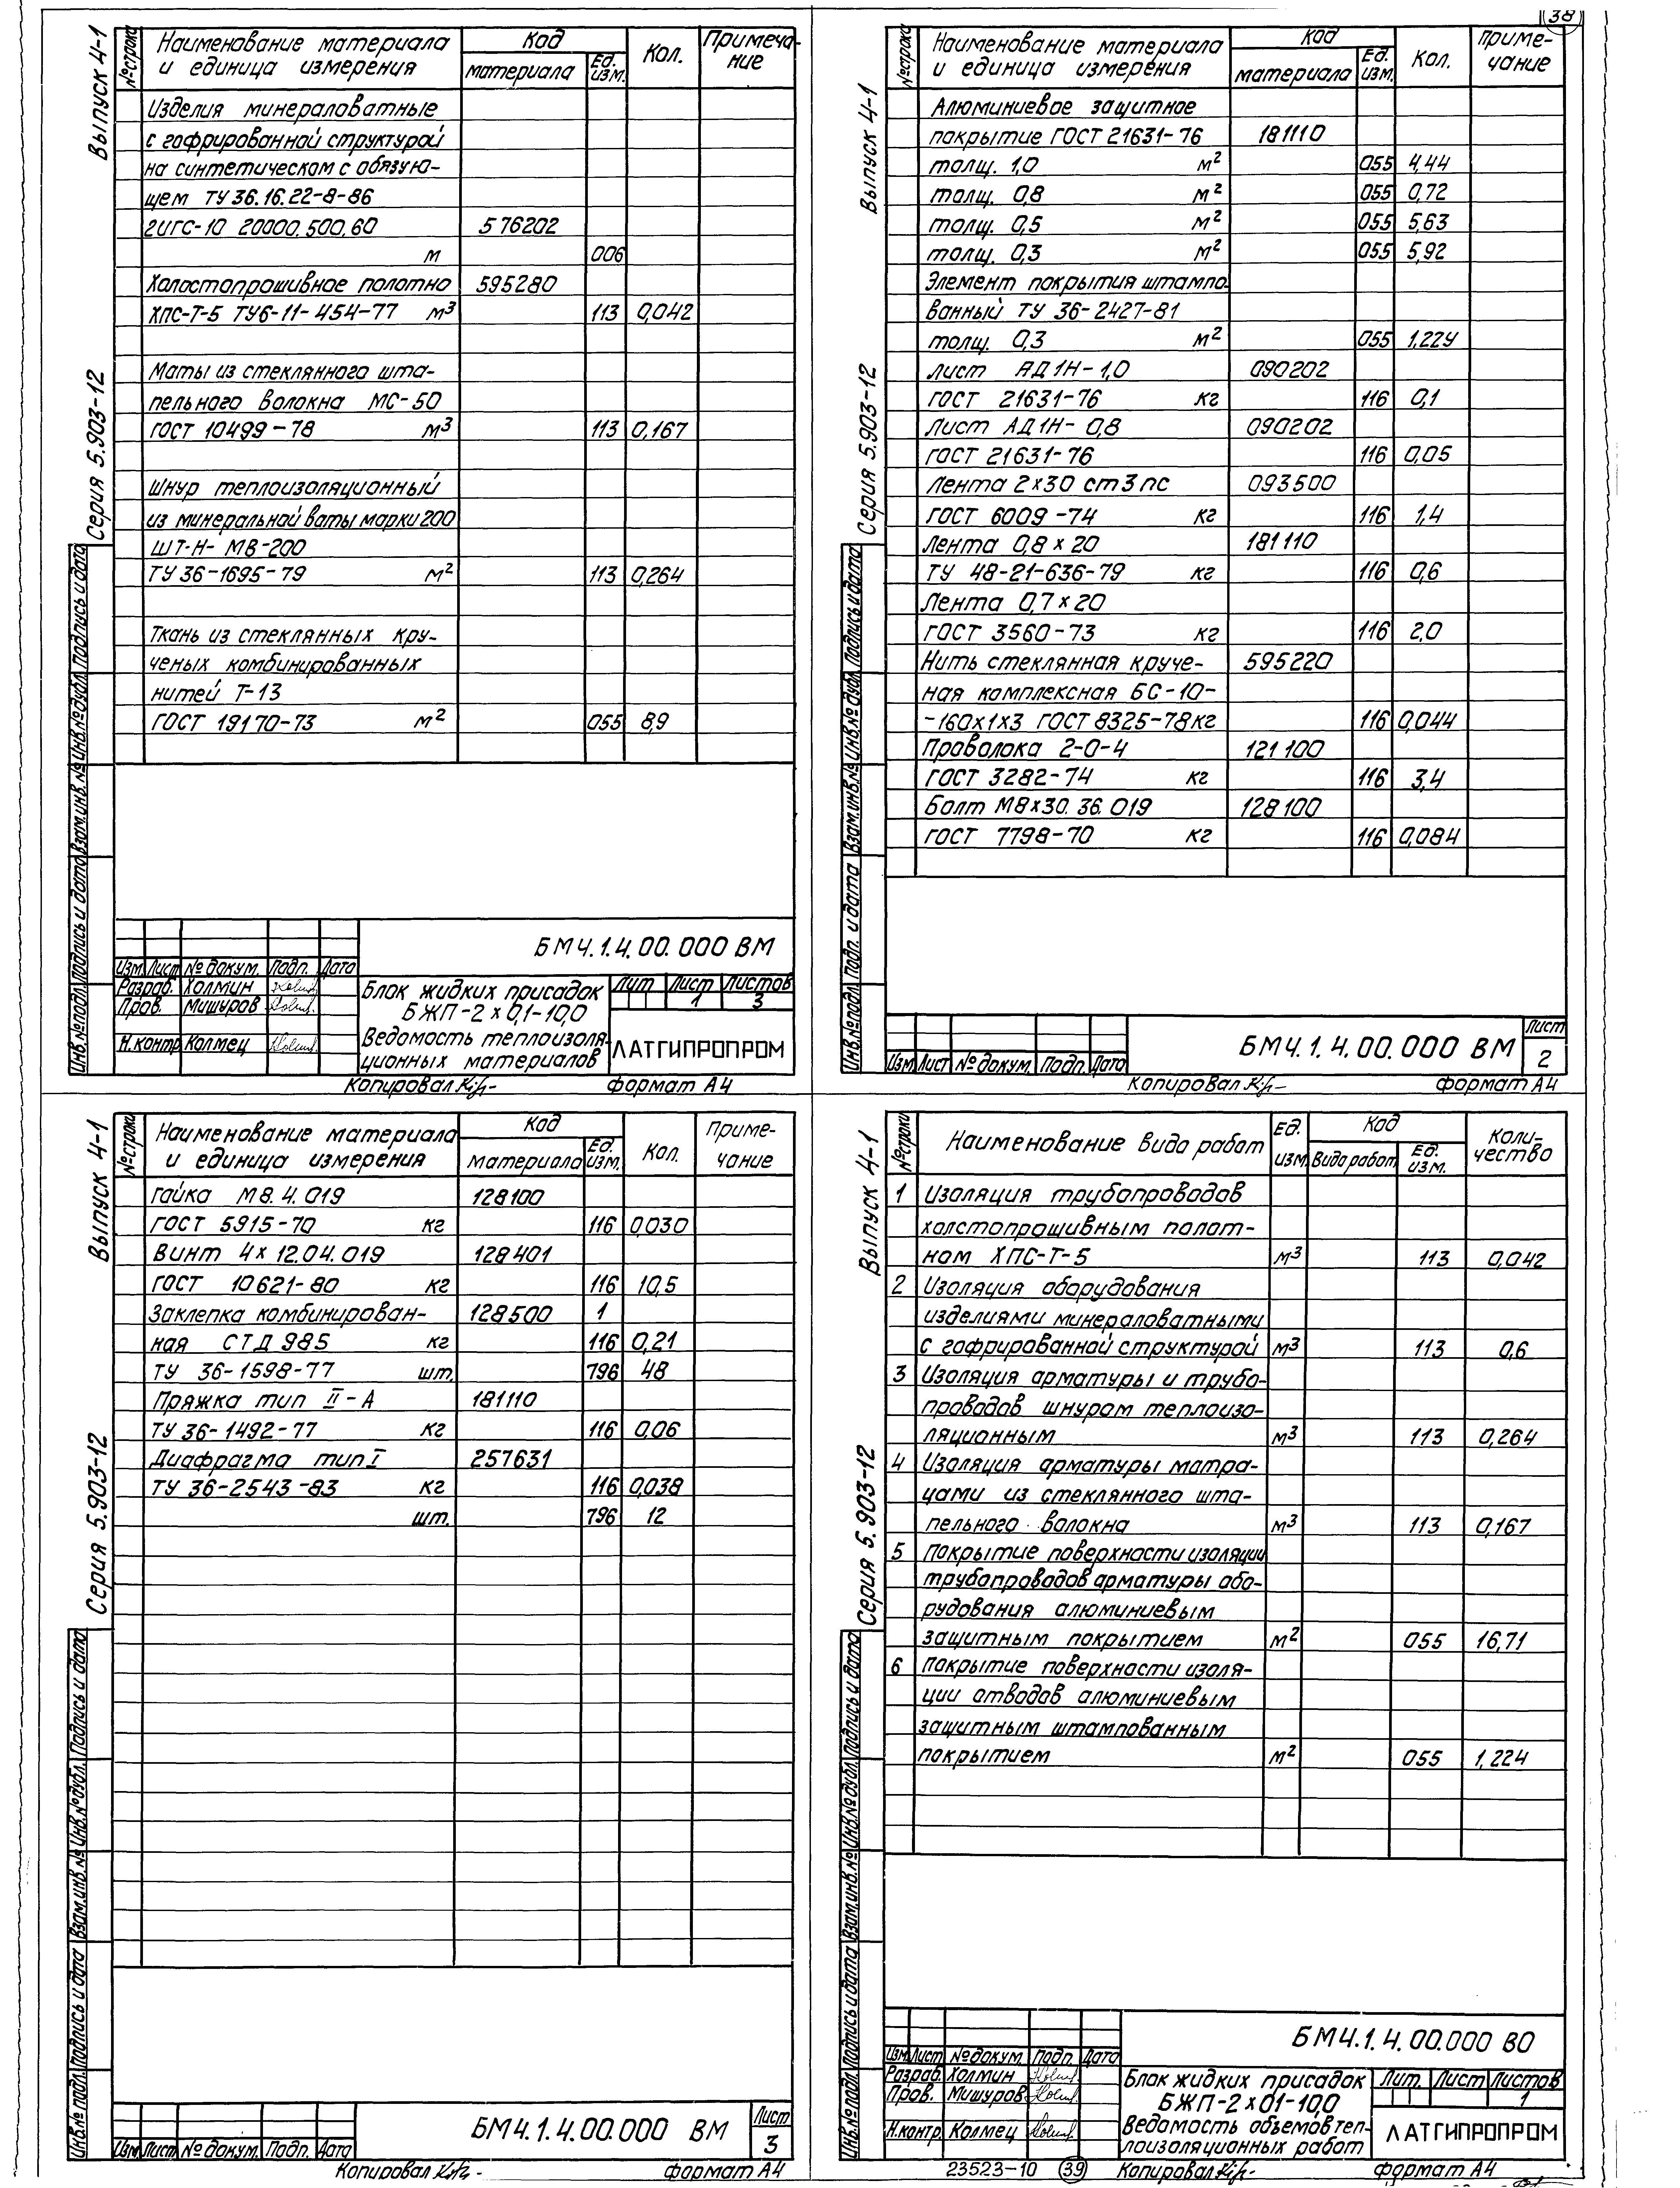 38
Выпуск 4-1
Серия 5.903-12
№ строки
Наименование материала
и единица измерения
Код
материала
Ед.
изм.
Кол.
Примеча-
ние
Изделия минераловатные
с гофрированной структурой
на синтетическом с обязую-
щем ТУ 36.16.22-8-86
2ИГС-10 20000.500.60 576202
м 006
Халстопрошивное полотно 595280
ХПС-Т-5 ТУ6-11-454-77 м³ 113 0,042
Маты из стеклянного шта-
пельного волокна МС-50
ГОСТ 10499-78 м³ 113 0,167
Шнур теплоизоляционный
из минеральной ваты марки 200
ШТ-Н-МВ-200
ТУ 36-1695-79 м² 113 0,264
Ткань из стеклянных кру-
ченых комбинированных
нитей Т-13
ГОСТ 19170-73 м² 055 8,9
БМ4.1.4.00.000 ВМ
Изм. Лист № докум. Подп. Дата
Разраб. Холмин
Пров. Мишуров
Н.контр Колмец
Блок жидких присадок
БЖП-2х0,1-10,0
Ведомость теплоизоля-
ционных материалов
Лит Лист Листов
1 3
ЛАТГИПРОПРОМ
Инв.№ подл. Подпись и дата Взам.инв.№ Инв.№ дубл. Подпись и дата
Копировал
формат А4
Выпуск 4-1
Серия 5.903-12
№ строки
Наименование материала
и единица измерения
Код
материала
Ед.
изм.
Кол.
Приме-
чание
Алюминиевое защитное
покрытие ГОСТ 21631-76 181110
толщ. 1,0 м² 055 4,44
толщ. 0,8 м² 055 0,72
толщ. 0,5 м² 055 5,63
толщ. 0,3 м² 055 5,92
Элемент покрытия штампо-
ванный ТУ 36-2427-81
толщ. 0,3 м² 055 1,224
Лист АД1Н-1,0 090202
ГОСТ 21631-76 кг 116 0,1
Лист АД1Н-0,8 090202
ГОСТ 21631-76 116 0,05
Лента 2х30 ст3пс 093500
ГОСТ 6009-74 кг 116 1,4
Лента 0,8х20 181110
ТУ 48-21-636-79 кг 116 0,6
Лента 0,7х20
ГОСТ 3560-73 кг 116 2,0
Нить стеклянная круче- 595220
ная комплексная БС-10-
-160х1х3 ГОСТ 8325-78 кг 116 0,044
Проволока 2-0-4 121100
ГОСТ 3282-74 кг 116 3,4
Болт М8х30.36.019 128100
ГОСТ 7798-70 кг 116 0,084
Изм. Лист № докум. Подп. Дата
БМ4.1.4.00.000 ВМ
Лист
2
Инв.№ подл. Подп. и дата Взам.инв.№ Инв.№ дубл. Подпись и дата
Копировал
формат А4
Выпуск 4-1
Серия 5.903-12
№ строки
Наименование материала
и единица измерения
Код
материала
Ед.
изм.
Кол.
Приме-
чание
Гайка М8.4.019 128100
ГОСТ 5915-70 кг 116 0,030
Винт 4х12.04.019 128401
ГОСТ 10621-80 кг 116 10,5
Заклепка комбинирован- 128500 1
ная СТД 985 кг 116 0,21
ТУ 36-1598-77 шт. 796 48
Пряжка тип II-А 181110
ТУ 36-1492-77 кг 116 0,06
Диафрагма тип I 257631
ТУ 36-2543-83 кг 116 0,038
шт. 796 12
Изм. Лист № докум. Подп. Дата
БМ4.1.4.00.000 ВМ
Лист
3
Инв.№ подл. Подпись и дата Взам.инв.№ Инв.№ дубл. Подпись и дата
Копировал
формат А4
Выпуск 4-1
Серия 5.903-12
№ строки
Наименование вида работ
Ед.
изм.
Код
Вида работ
Ед.
изм.
Коли-
чество
1 Изоляция трубопроводов
халстопрошивным полот-
ном ХПС-Т-5 м³ 113 0,042
2 Изоляция оборудования
изделиями минераловатными
с гофрированной структурой м³ 113 0,6
3 Изоляция арматуры и трубо-
проводов шнуром теплоизо-
ляционным м³ 113 0,264
4 Изоляция арматуры матра-
цами из стеклянного шта-
пельного волокна м³ 113 0,167
5 Покрытие поверхности изоляции
трубопроводов арматуры обо-
рудования алюминиевым
защитным покрытием м² 055 16,71
6 Покрытие поверхности изоля-
ции отводов алюминиевым
защитным штампованным
покрытием м² 055 1,224
БМ4.1.4.00.000 ВО
Изм. Лист № докум. Подп. Дата
Разраб. Холмин
Пров. Мишуров
Н.контр. Колмец
Блок жидких присадок
БЖП-2х01-10,0
Ведомость объемов теп-
лоизоляционных работ
Лит. Лист Листов
1
ЛАТГИПРОПРОМ
Инв.№ подл. Подпись и дата Взам.инв.№ Инв.№ дубл. Подпись и дата
23523-10 39
Копировал
формат А4